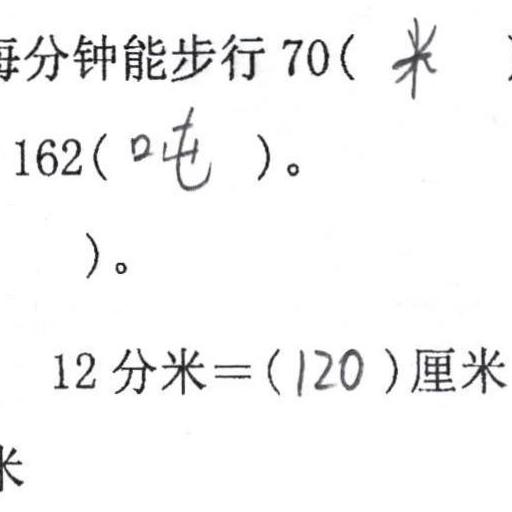 每分钟能步行 70( 米 )
162( 吨 )。
)。
12 分米=(120)厘米
米